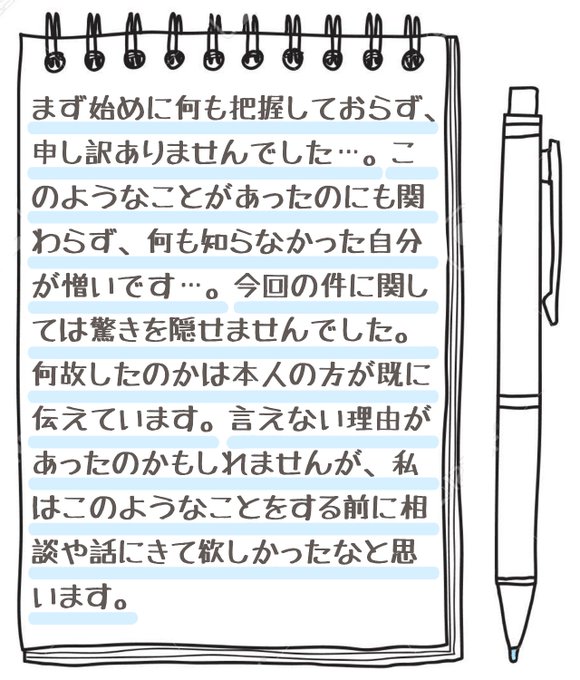 まず始めに何も把握しておらず、
申し訳ありませんでした…。こ
のようなことがあったのにも関
わらず、何も知らなかった自分
が憎いです…。今回の件に関し
ては驚きを隠せませんでした。
何故したのかは本人の方が既に
伝えています。言えない理由が
あったのかもしれませんが、私
はこのようなことをする前に相
談や話にきて欲しかったなと思
います。